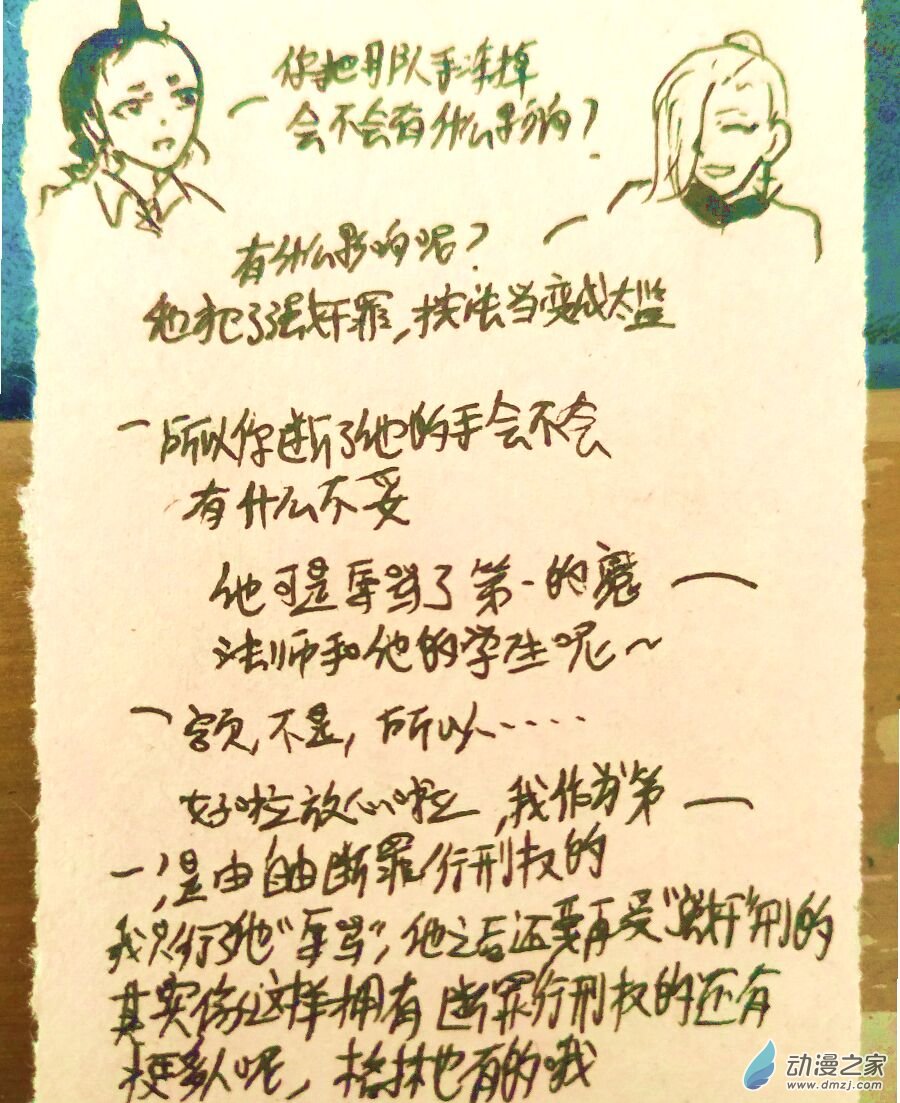 你把那队手弄掉
会不会有什么影响？
有什么影响呢？
他犯了强奸罪，按法当变成太监
所以你断了他的手会不会
有什么不妥
他可是辱骂了第一的魔
法师和他的学生呢～
额，不是，所以……
好啦放心啦，我作为第
一，是由自由断罪行刑权的
我只行了他“辱骂”，他之后还要再受“强奸”刑的
其实像这样拥有断罪行刑权的还有
很多人呢，格林也有的哦
动漫之家
www.dmzj.com